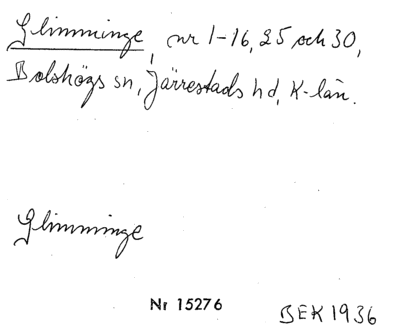 Glimminge, nr 1-16, 25 och 30,
Bolshögs sn, Järrestads hd, K-län.
Glimminge
Nr 15276
BEK 1936